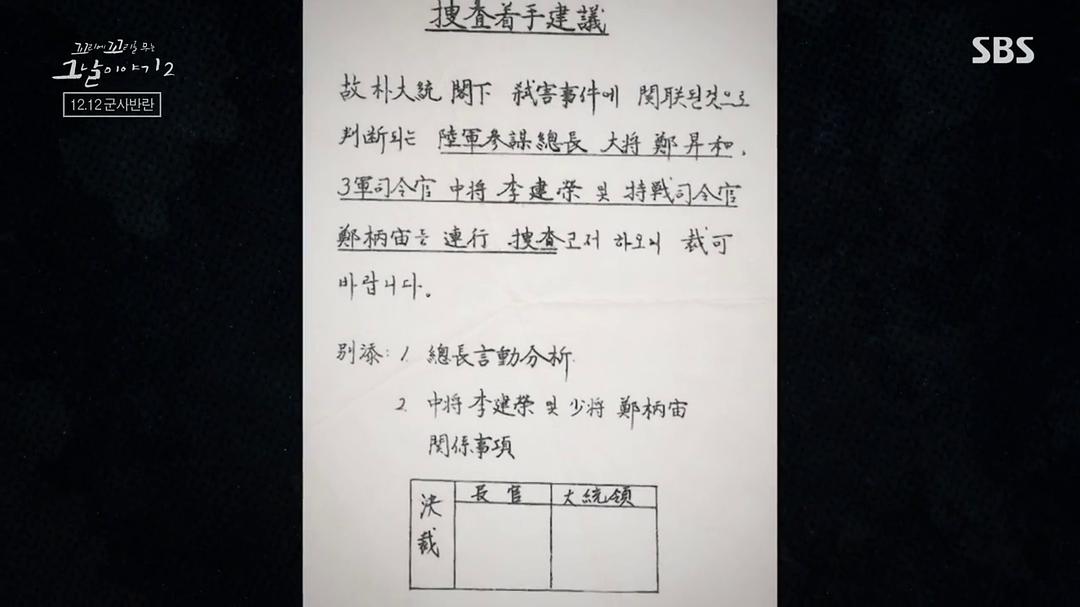 꼬리에 꼬리를 무는
그날 이야기 2
12.12 군사반란
SBS
捜査着手建議
故 朴大統 閣下 弑害事件에 関联된것으로
判断되는 陸軍参謀總長 大将 鄭昇和,
3軍司令官 中将 李建榮 및 特戦司令官
鄭柄宙를 連行 捜査코저 하오니 裁可
바랍니다.
別添: 1. 總長言動分析.
2. 中将 李建榮 및 少将 鄭柄宙
関係事項
決裁
長官 大統領